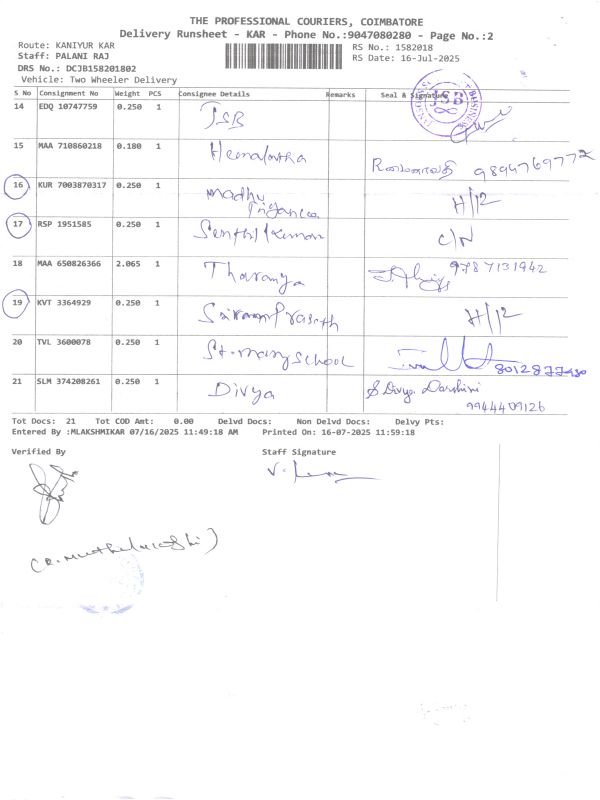 THE PROFESSIONAL COURIERS, COIMBATORE
Delivery Runsheet - KAR - Phone No.:9047080280 - Page No.:2
Route: KANIYUR KAR RS No.: 1582018
Staff: PALANI RAJ RS Date: 16-Jul-2025
DRS No.: DCJB158201802
Vehicle: Two Wheeler Delivery
S No Consignment No Weight PCS Consignee Details Remarks Seal & Signature
14 EDQ 10747759 0.250 1 JSB JSB
15 MAA 710860218 0.180 1 9894769772
16 KUR 7003870317 0.250 1 madhu Priyanca H/12
17 RSP 1951585 0.250 1 Senthilkumar C/N
18 MAA 650826366 2.065 1 Tharanya 9787131942
19 KVT 3364929 0.250 1 H/12
20 TVL 3600078 0.250 1 St.mary School
21 SLM 374208261 0.250 1 Divya S Divya Darshini
9944409126
Tot Docs: 21 Tot COD Amt: 0.00 Delvd Docs: Non Delvd Docs: Delvy Pts:
Entered By :MLAKSHMIKAR 07/16/2025 11:49:18 AM Printed On: 16-07-2025 11:59:18
Verified By Staff Signature